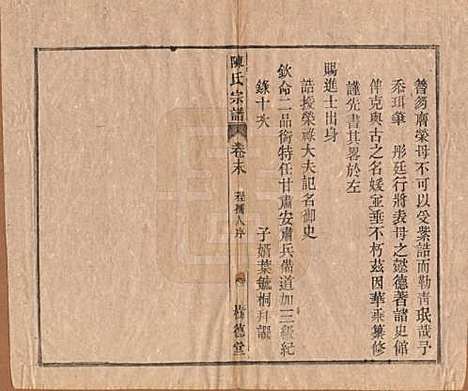 簪笏齊榮母不可以受紫誥而勒青珉哉予
忝珥筆 彤廷行將表母之懿德著諸史館
俾克與古之名媛並垂不朽茲因華乘纂修
謹先書其畧於左
賜進士出身
誥授榮祿大夫記名御史
欽命二品銜特任甘肅安肅兵備道加三級紀
錄十次
子婿葉毓桐拜譔
陳氏宗譜
卷末
孺人序
德堂